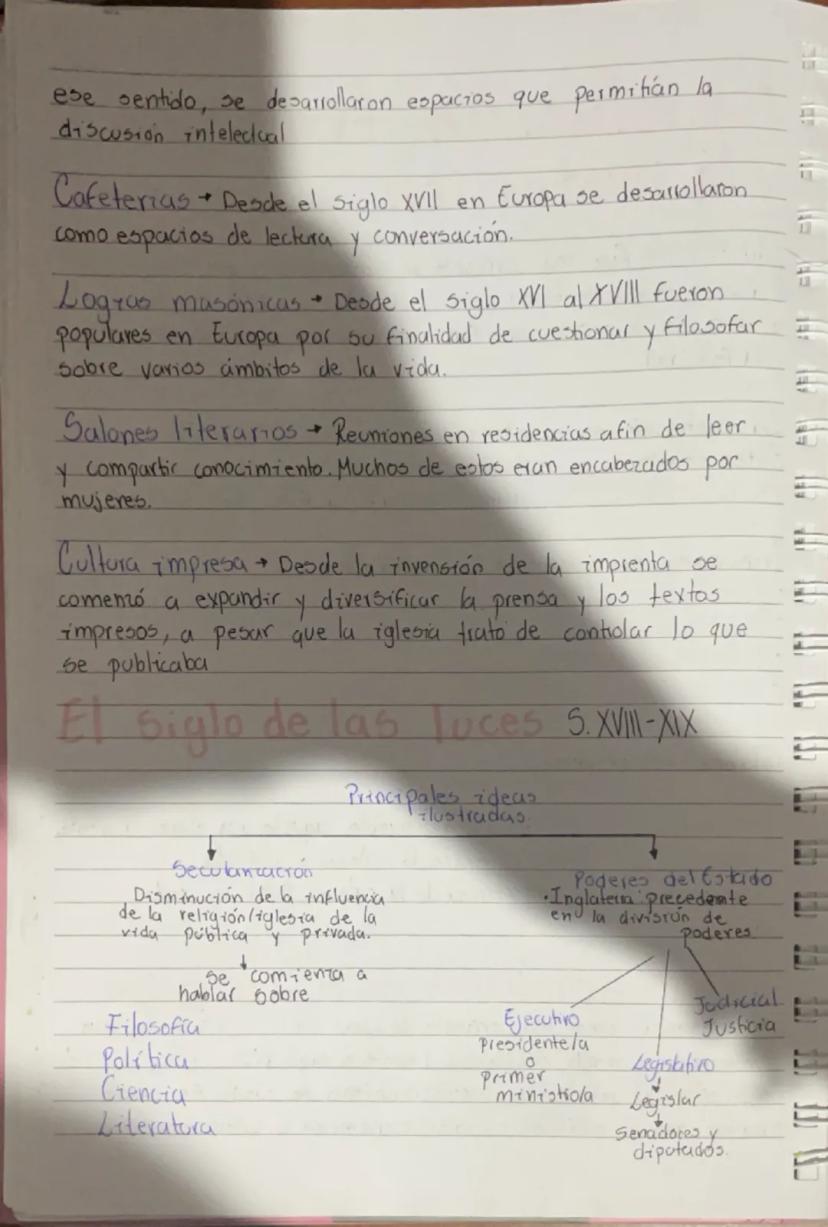 ese sentido, se desarrollaron espacios que permitián la
discusión intelectual
Cafeterias → Desde el siglo XVII en Europa se desarrollaron
como espacios de lectura y conversación.
Logias masónicas → Desde el siglo XVI al XVIII fueron
populares en Europa por su finalidad de cuestionar y filosofar
sobre varios ámbitos de la vida.
Salones literarios → Reuniones en residencias afin de leer
y compartir conocimiento. Muchos de estos eran encabezados por
mujeres.
Cultura impresa → Desde la invensión de la imprenta se
comenzó a expandir y diversificar la prensa y los textos
impresos, a pesar que la iglesia trato de controlar lo que
se publicaba
El siglo de las luces S. XVIII-XIX
Principales ideas
ilustradas.
Secularización
Disminución de la influencia
de la religión/iglesia de la
vida pública y privada.
↓
Se comienza a
hablar sobre
Filosofía
Política
Ciencia
Literatura
Poderes del Estado
• Inglaterra precedente
en la división de
poderes
Ejecutivo
Presidente/a
o
primer
ministro/a
Legislativo
↓
Legislar
↓
Senadores y
diputados.
Judicial
Justicia